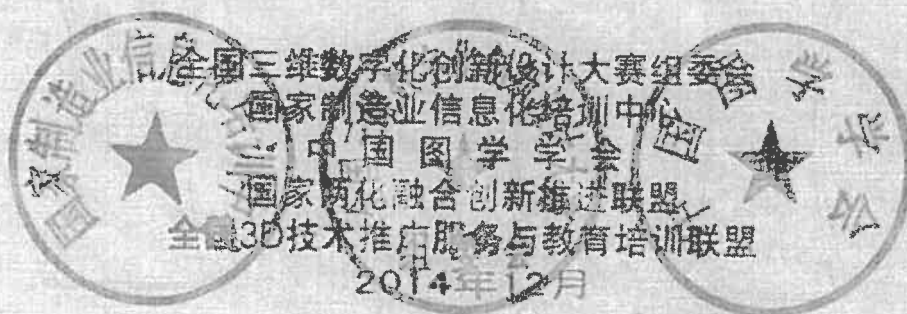 全国三维数字化创新设计大赛组委会
国家制造业信息化培训中心
中国图学学会
国家两化融合创新推进联盟
全国3D技术推广服务与教育培训联盟
2014年12月
国家制造业信息
国图学学会